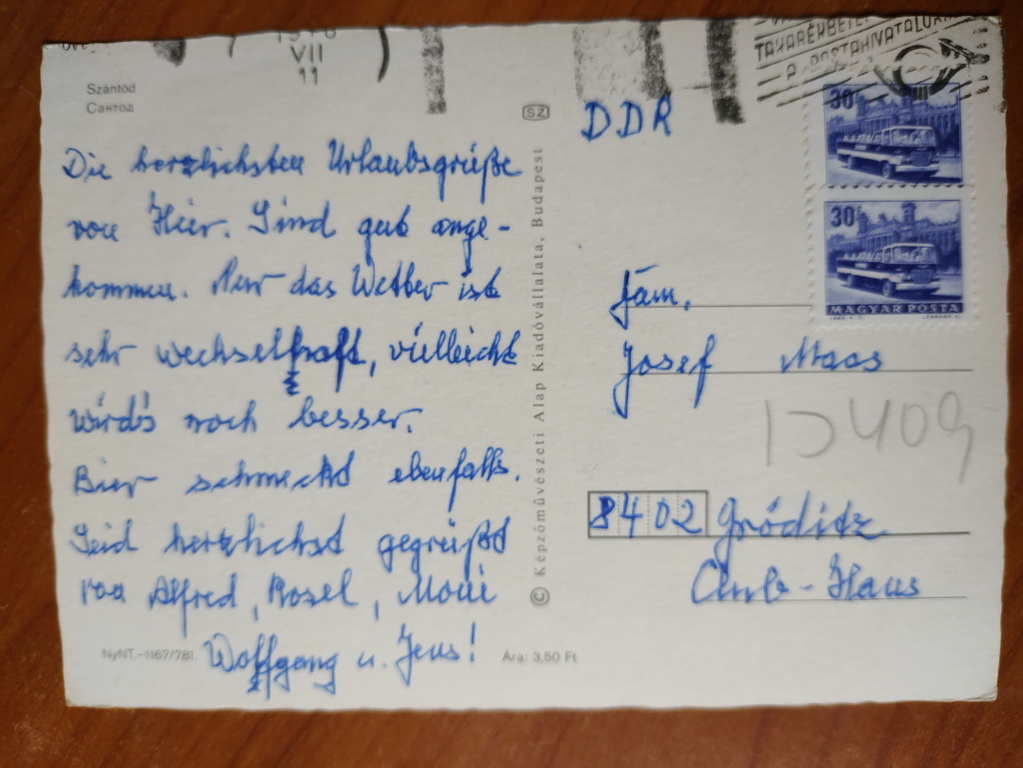 Szántód
Сантод
VII
11
TAKARÉKBETÉT
A POSTAHIVATALOKNÁL
SZ
DDR
30f
30f
MAGYAR POSTA
Die herzlichsten Urlaubsgrüße
von Hier. Sind gut ange-
kommen. Nur das Wetter ist
sehr wechselhaft, vielleicht
wird's noch besser.
Bier schmeckt ebenfalls.
Seid herzlichst gegrüßt
von Alfred, Rosel,
Wolfgang u. Jens!
NyNT.-1167/781
Ára: 3,50 Ft
© Képzőművészeti Alap Kiadóvállalata, Budapest
Fam.
Josef Maas
D409
8402 Gröditz
Club-Haus